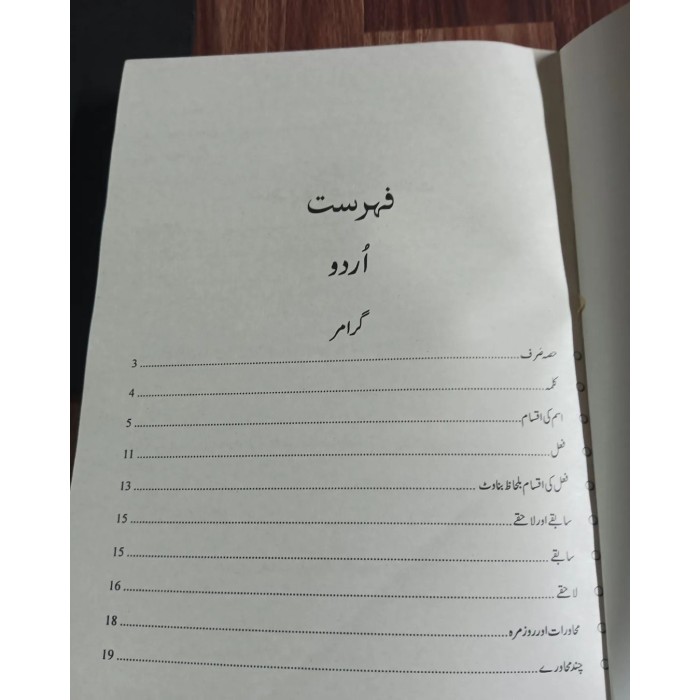 فہرست
اُردو
گرامر
حصہ صرف 3
کلمہ 4
اسم کی اقسام 5
فعل 11
فعل کی اقسام بلحاظ بناوٹ 13
سابقے اور لاحقے 15
سابقے 15
لاحقے 16
محاورات اور روزمرہ 18
چند محاورے 19